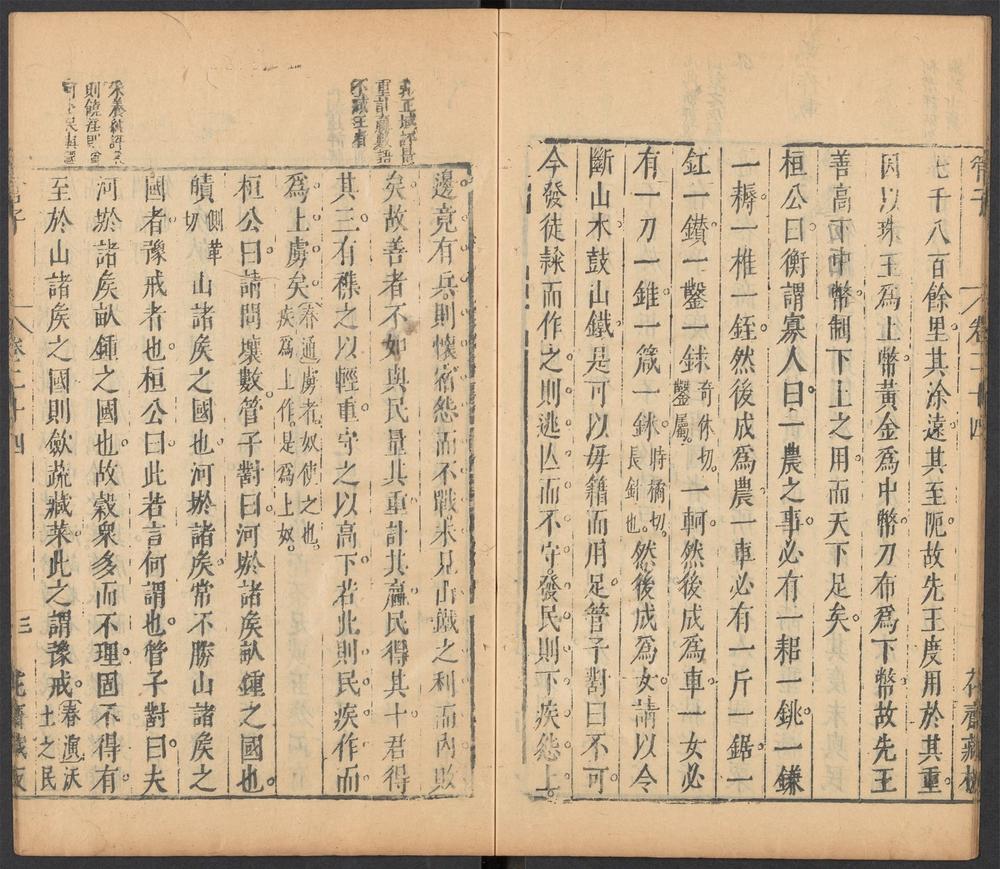 管子
卷二十四
花齋藏板
七千八百餘里其涂遠其至阨故先王度用於其重
因以珠玉爲上幣黃金爲中幣刀布爲下幣故先王
善高下中幣制下上之用而天下足矣
桓公曰衡謂寡人曰一農之事必有一耜一銚一鎌
一耨一椎一銍然後成爲農一車必有一斤一鋸一
釭一鑽一鑿一銶奇休切鑿屬一軻然後成爲車一女必
有一刀一錐一箴一鉥時橘切長針也然後成爲女請以令
斷山木鼓山鐵是可以毋籍而用足管子對曰不可
今發徒隸而作之則逃亾而不守發民則下疾怨上
邊竟有兵則懷宿怨而不戰未見山鐵之利而內敗
矣故善者不如與民量其重計其贏民得其十君得
其三有襍之以輕重守之以高下若此則民疾作而
爲上虜矣春通虜者奴使之也疾爲上作是爲上奴
桓公曰請問壤數管子對曰河㳀諸矦畝鍾之國也
㯏側革切山諸矦之國也河㳀諸矦常不勝山諸矦之
國者豫戒者也桓公曰此若言何謂也管子對曰夫
河㳀諸矦畝鍾之國也故穀衆多而不理固不得有
至於山諸矦之國則斂蔬藏菜此之謂豫戒春演沃土之民
重計贏數語
不諴王者
管子
卷二十四
三
花齋藏板